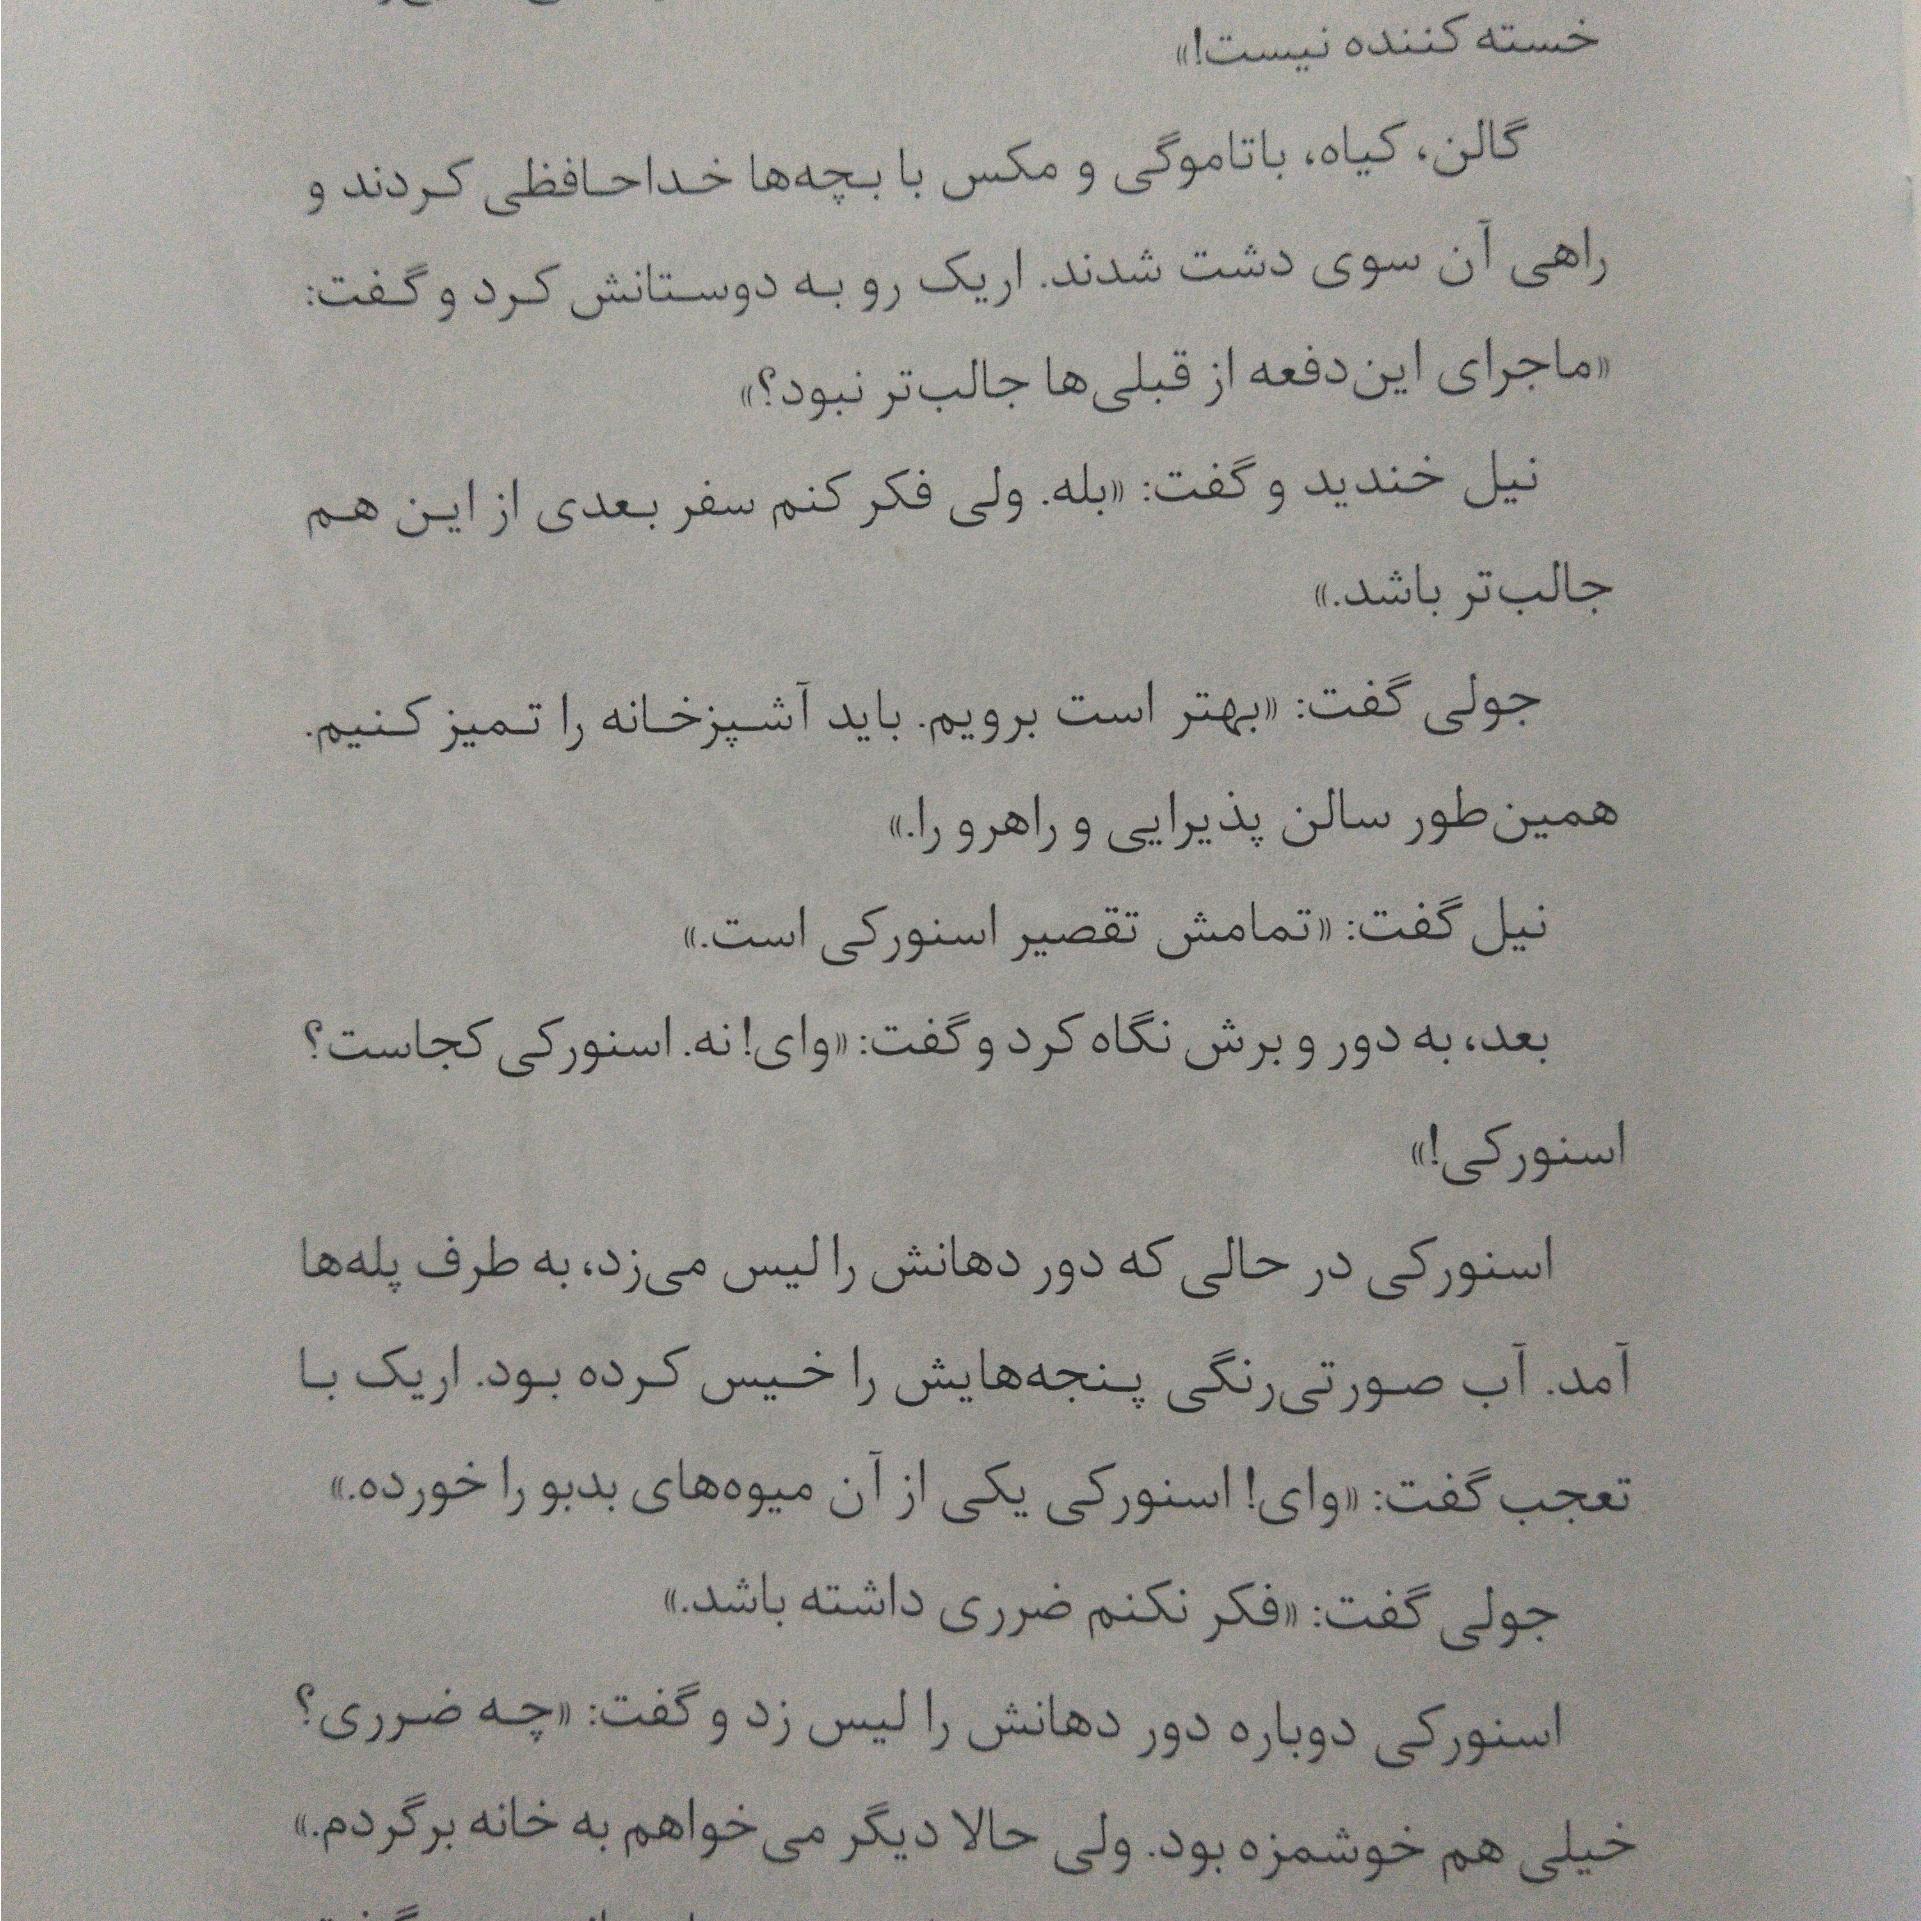 خسته کننده نیست!»
گالن، کیاه، باتاموگی و مکس با بچه‌ها خداحافظی کردند و
راهی آن سوی دشت شدند. اریک رو به دوستانش کرد و گفت:
«ماجرای این‌دفعه از قبلی‌ها جالب‌تر نبود؟»
نیل خندید و گفت: «بله. ولی فکر کنم سفر بعدی از این هم
جالب‌تر باشد.»
جولی گفت: «بهتر است برویم. باید آشپزخانه را تمیز کنیم.
همین‌طور سالن پذیرایی و راهرو را.»
نیل گفت: «تمامش تقصیر اسنورکی است.»
بعد، به دور و برش نگاه کرد و گفت: «وای! نه. اسنورکی کجاست؟
اسنورکی!»
اسنورکی در حالی که دور دهانش را لیس می‌زد، به طرف پله‌ها
آمد. آب صورتی‌رنگی پنجه‌هایش را خیس کرده بود. اریک با
تعجب گفت: «وای! اسنورکی یکی از آن میوه‌های بدبو را خورده.»
جولی گفت: «فکر نکنم ضرری داشته باشد.»
اسنورکی دوباره دور دهانش را لیس زد و گفت: «چه ضرری؟
خیلی هم خوشمزه بود. ولی حالا دیگر می‌خواهم به خانه برگردم.»